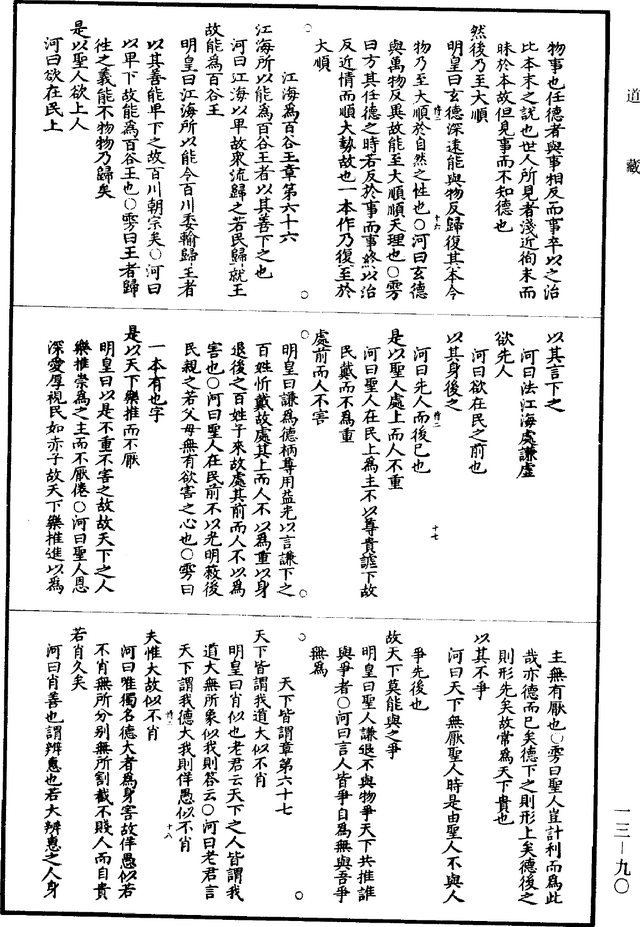 道藏
物事也任德者與事相反而事卒以之治
比本末之說也世人所見者淺近徇末而
昧於本故但見事而不知德也
然後乃至大順
明皇曰玄德深遠能與物反歸復其本令
物乃至大順於自然之性也○河曰玄德
與萬物反異故能至大順順天理也○雱
曰方其任德之時若反於事而事於以治
反近情而順大勢故也一本作乃復至於
大順
江海為百谷王章第六十六
江海所以能為百谷王者以其善下之也
河曰江海以卑故衆流歸之若民歸就王
故能為百谷王
明皇曰江海所以能令百川委輸歸王者
以其善能卑下之故百川朝宗矣○河曰
以卑下故能為百谷王也○雱曰王者歸
往之義能不物物乃歸矣
是以聖人欲上人
河曰欲在民上
以其言下之
河曰法江海處謙虛
欲先人
河曰欲在民之前也
以其身後之
河曰先人而後己也
是以聖人處上而人不重
河曰聖人在民上為主不以尊貴謔下故
民戴而不為重
處前而人不害
明皇曰謙為德柄尊用益光以言謙下之
百姓忻戴故處其上而人不以為重以身
退後之百姓子來故處其前而人不以為
害也○河曰聖人在民前不以光明蔽後
民親之若父母無有欲害之心也○雱曰
一本有也字
是以天下樂推而不厭
明皇曰以是不重不害之故故天下之人
樂推崇為之主而不厭倦○河曰聖人恩
深愛厚視民如赤子故天下樂推進以為
主無有厭也○雱曰聖人豈計利而為此
哉亦德而已矣德下之則形上矣德後之
則形先矣故常為天下貴也
以其不爭
河曰天下無厭聖人時是由聖人不與人
爭先後也
故天下莫能與之爭
明皇曰聖人謙退不與物爭天下共推誰
與爭者○河曰言人皆爭自為無與吾爭
無為
天下皆謂章第六十七
天下皆謂我道大似不肖
明皇曰肖似也老君云天下之人皆謂我
道大無所象似我則答云○河曰老君言
天下謂我德大我則佯愚似不肖
夫惟大故似不肖
河曰唯獨名德大者為身害故佯愚似若
不肖無所分別無所割截不賤人而自貴
若肖久矣
河曰肖善也謂辨惠也若大辨惠之人身
十六
十七
十八
一三—九〇